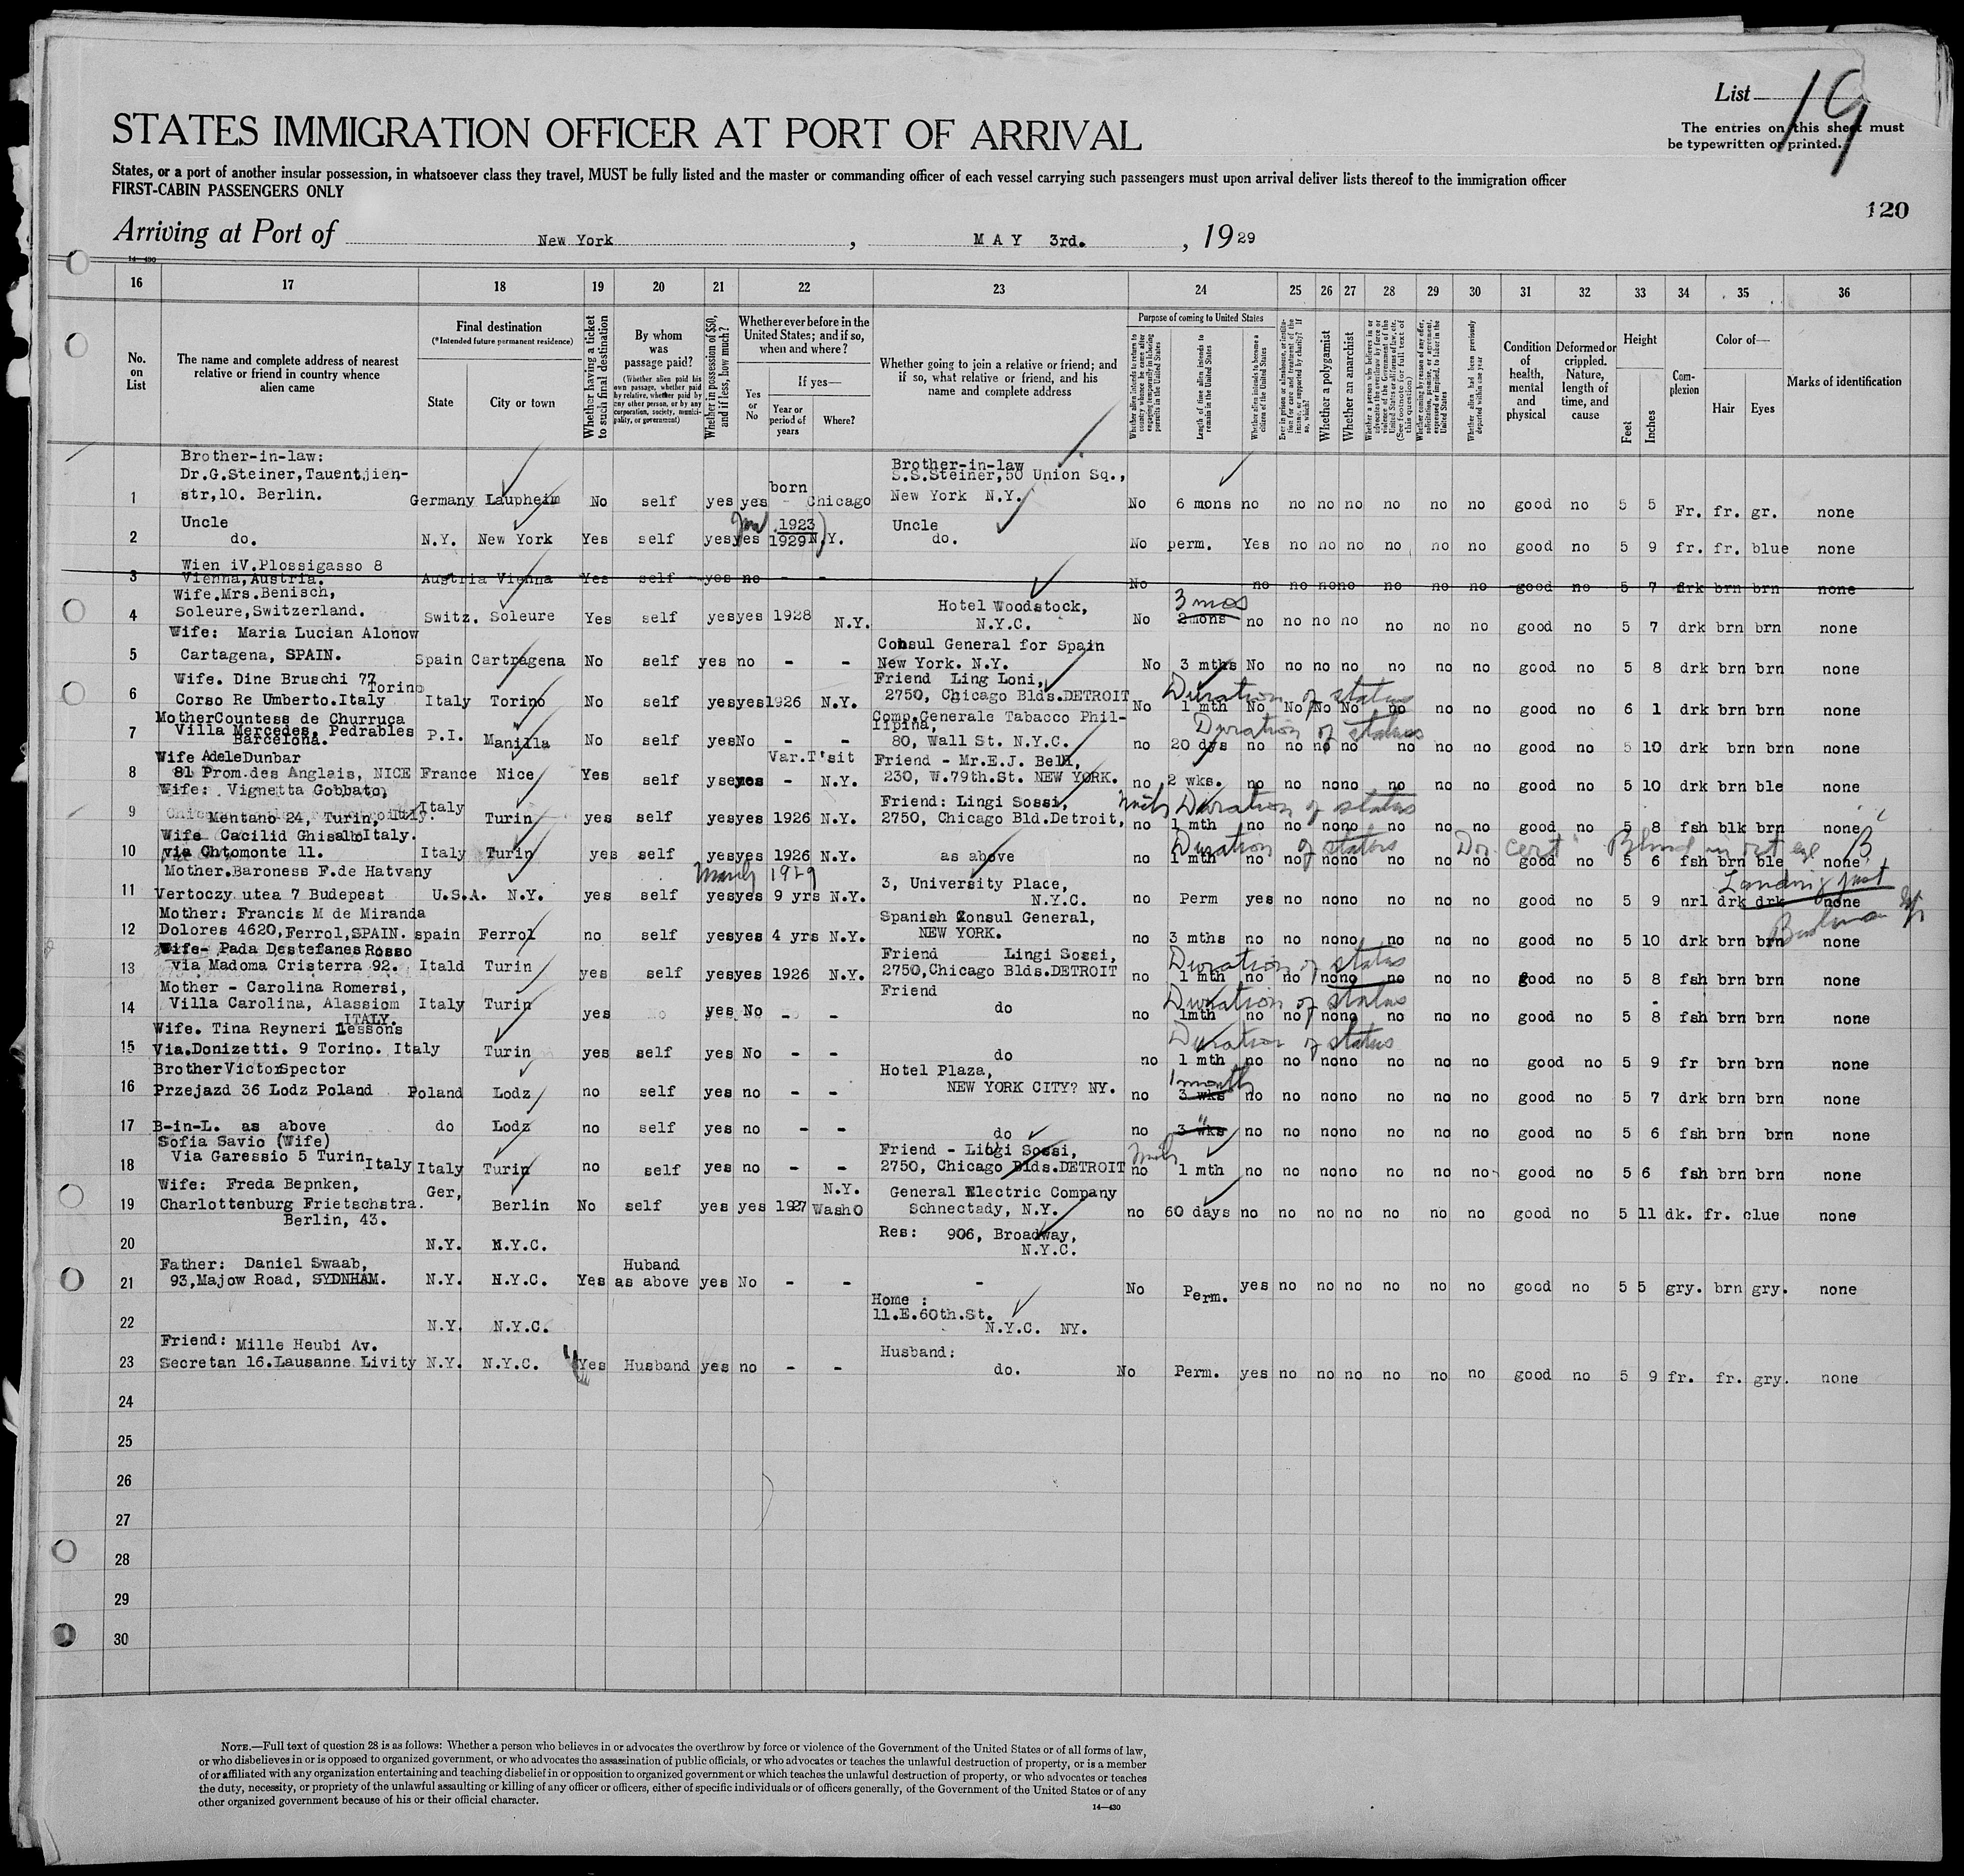 List 19
STATES IMMIGRATION OFFICER AT PORT OF ARRIVAL
The entries on this sheet must
be typewritten or printed.
States, or a port of another insular possession, in whatsoever class they travel, MUST be fully listed and the master or commanding officer of each vessel carrying such passengers must upon arrival deliver lists thereof to the immigration officer
FIRST-CABIN PASSENGERS ONLY
120
Arriving at Port of New York, MAY 3rd., 1929
14—430
16 17 18 19 20 21 22 23 24 25 26 27 28 29 30 31 32 33 34 35 36
No. on List
The name and complete address of nearest relative or friend in country whence alien came
Final destination
(*Intended future permanent residence)
State
City or town
Whether having a ticket to such final destination
By whom was passage paid?
(Whether alien paid his own passage, whether paid by relative, whether paid by any other person, or by any corporation, society, municipality, or government)
Whether in possession of $50, and if less, how much?
Whether ever before in the United States; and if so, when and where?
Yes or No
If yes—
Year or period of years
Where?
Whether going to join a relative or friend; and if so, what relative or friend, and his name and complete address
Purpose of coming to United States
Whether alien intends to return to country whence he came after engaging temporarily in laboring pursuits in the United States
Length of time alien intends to remain in the United States
Whether alien intends to become a citizen of the United States
Ever in prison or almshouse, or institution for care and treatment of the insane, or supported by charity? If so, which?
Whether a polygamist
Whether an anarchist
Whether a person who believes in or advocates the overthrow by force or violence of the Government of the United States or all forms of law, etc. (See footnote for full text of this question)
Whether coming by reason of any offer, solicitation, promise, or agreement, expressed or implied, to labor in the United States
Whether alien had been previously deported within one year
Condition of health, mental and physical
Deformed or crippled. Nature, length of time, and cause
Height
Feet
Inches
Complexion
Color of—
Hair
Eyes
Marks of identification
Brother-in-law:
Dr.G.Steiner,Tauentjien-
1 str,10. Berlin. Germany Laupheim No self yes yes born - Chicago Brother-in-law S.S.Steiner,50 Union Sq., New York N.Y. No 6 mons no no no no no no no good no 5 5 Fr. fr. gr. none
Uncle
2 do. N.Y. New York Yes self yes yes 1923 1929 N.Y. Uncle do. No perm. Yes no no no no no no good no 5 9 fr. fr. blue none
Wien iV.Plossigasso 8
3 Vienna,Austria. Austria Vienna Yes self yes no - - No no no no no no no no good no 5 7 drk brn brn none
Wife.Mrs.Benisch,
4 Soleure,Switzerland. Switz. Soleure Yes self yes yes 1928 N.Y. Hotel Woodstock, N.Y.C. No 3 mos 2mons no no no no no no no good no 5 7 drk brn brn none
Wife: Maria Lucian Alonow
5 Cartagena, SPAIN. Spain Cartragena No self yes no - - Consul General for Spain New York. N.Y. No 3 mths No no no no no no no good no 5 8 drk brn brn none
Wife. Dine Bruschi 77
Torino
6 Corso Re Umberto.Italy Italy Torino No self yes yes 1926 N.Y. Friend Ling Loni, 2750, Chicago Blds.DETROIT No Duration of status 1 mth No No No No no no no good no 6 1 drk brn brn none
MotherCountess de Churruca
7 Villa Mercedes, Pedrables
Barcelona. P.I. Manilla No self yes No - - Comp.Generale Tabacco Phil-
Iipina,
80, Wall St. N.Y.C. no Duration of status 20 dys no no no no no no no good no 5 10 drk brn brn none
Wife AdeleDunbar
8 81 Prom.des Anglais, NICE France Nice Yes self yes yes Var.T'sit - N.Y. Friend - Mr.E.J. Bell, 230, W.79th.St. NEW YORK. no 2 wks. no no no no no no no good no 5 10 drk brn ble none
Wife: Vignetta Gobbato,
9 Mentano 24, Turin, Italy. Italy Turin yes self yes yes 1926 N.Y. Friend: Lingi Sossi, 2750, Chicago Bld.Detroit, no Duration of status 1 mth no no no no no no no good no 5 8 fsh blk brn none
Wife Cacilid Ghisalb Italy.
10 via Chtomonte 11. Italy Turin yes self yes yes 1926 N.Y. as above no Duration of status 1 mth no no no no no no no Dr. cert Blind in rt eye good no 5 6 fsh brn ble none
Mother.Baroness F.de Hatvany
11 Vertoczy utea 7 Budepest U.S.A. N.Y. yes self yes yes March 1929 9 yrs N.Y. 3, University Place, N.Y.C. no Perm yes no no no no no no good no 5 9 nrl drk drk none
Mother: Francis M de Miranda
12 Dolores 4620,Ferrol,SPAIN. spain Ferrol no self yes yes 4 yrs N.Y. Spanish Consul General, NEW YORK. no 3 mths no no no no no no no good no 5 10 drk brn brn none
Wife- Pada Destefanes Rosso
13 via Madoma Cristerra 92. Itald Turin yes self yes yes 1926 N.Y. Friend Lingi Sossi, 2750,Chicago Blds.DETROIT no Duration of status 1 mth no no no no no no no good no 5 8 fsh brn brn none
Mother - Carolina Romersi,
14 Villa Carolina, Alassiom
ITALY. Italy Turin yes no yes No - - Friend do no Duration of status 1mth no no no no no no no good no 5 8 fsh brn brn none
Wife. Tina Reyneri Lessons
15 Via.Donizetti. 9 Torino. Italy Turin yes self yes No - - do no Duration of status 1 mth no no no no no no no good no 5 9 fr brn brn none
BrotherVictorSpector
16 Przejazd 36 Lodz Poland Poland Lodz no self yes no - - Hotel Plaza, NEW YORK CITY? NY. no 1 month 3 wks no no no no no no no good no 5 7 drk brn brn none
17 B-in-L. as above do Lodz no self yes no - - do no " 3 wks no no no no no no no good no 5 6 fsh brn brn none
Sofia Savio (Wife)
18 Via Garessio 5 Turin Italy Italy Turin no self yes no - - Friend - Lingi Sossi, 2750, Chicago Blds.DETROIT no 1 mth no no no no no no no good no 5 6 fsh brn brn none
Wife: Freda Bepnken,
19 Charlottenburg Frietschstra.
Berlin, 43. Ger, Berlin No self yes yes 1927 N.Y. Wash0 General Electric Company Schnectady, N.Y. no 60 days no no no no no no no good no 5 11 dk. fr. clue none
20 N.Y. N.Y.C. Res: 906, Broadway, N.Y.C.
Father: Daniel Swaab,
21 93,Majow Road, SYDNHAM. N.Y. N.Y.C. Yes Huband as above yes No - - - No Perm. yes no no no no no no good no 5 5 gry. brn gry. none
22 N.Y. N.Y.C. Home : 11.E.60th.St. N.Y.C. NY.
Friend: Mille Heubi Av.
23 Secretan 16.Lausanne Livity N.Y. N.Y.C. Yes Husband yes no - - Husband: do. No Perm. yes no no no no no no good no 5 9 fr. fr. gry. none
24
25
26
27
28
29
30
NOTE.—Full text of question 28 is as follows: Whether a person who believes in or advocates the overthrow by force or violence of the Government of the United States or of all forms of law,
or who disbelieves in or is opposed to organized government, or who advocates the assassination of public officials, or who advocates or teaches the unlawful destruction of property, or is a member
of or affiliated with any organization entertaining and teaching disbelief in or opposition to organized government or which teaches the unlawful destruction of property, or who advocates or teaches
the duty, necessity, or propriety of the unlawful assaulting or killing of any officer or officers, either of specific individuals or of officers generally, of the Government of the United States or of any
other organized government because of his or their official character.
14—430